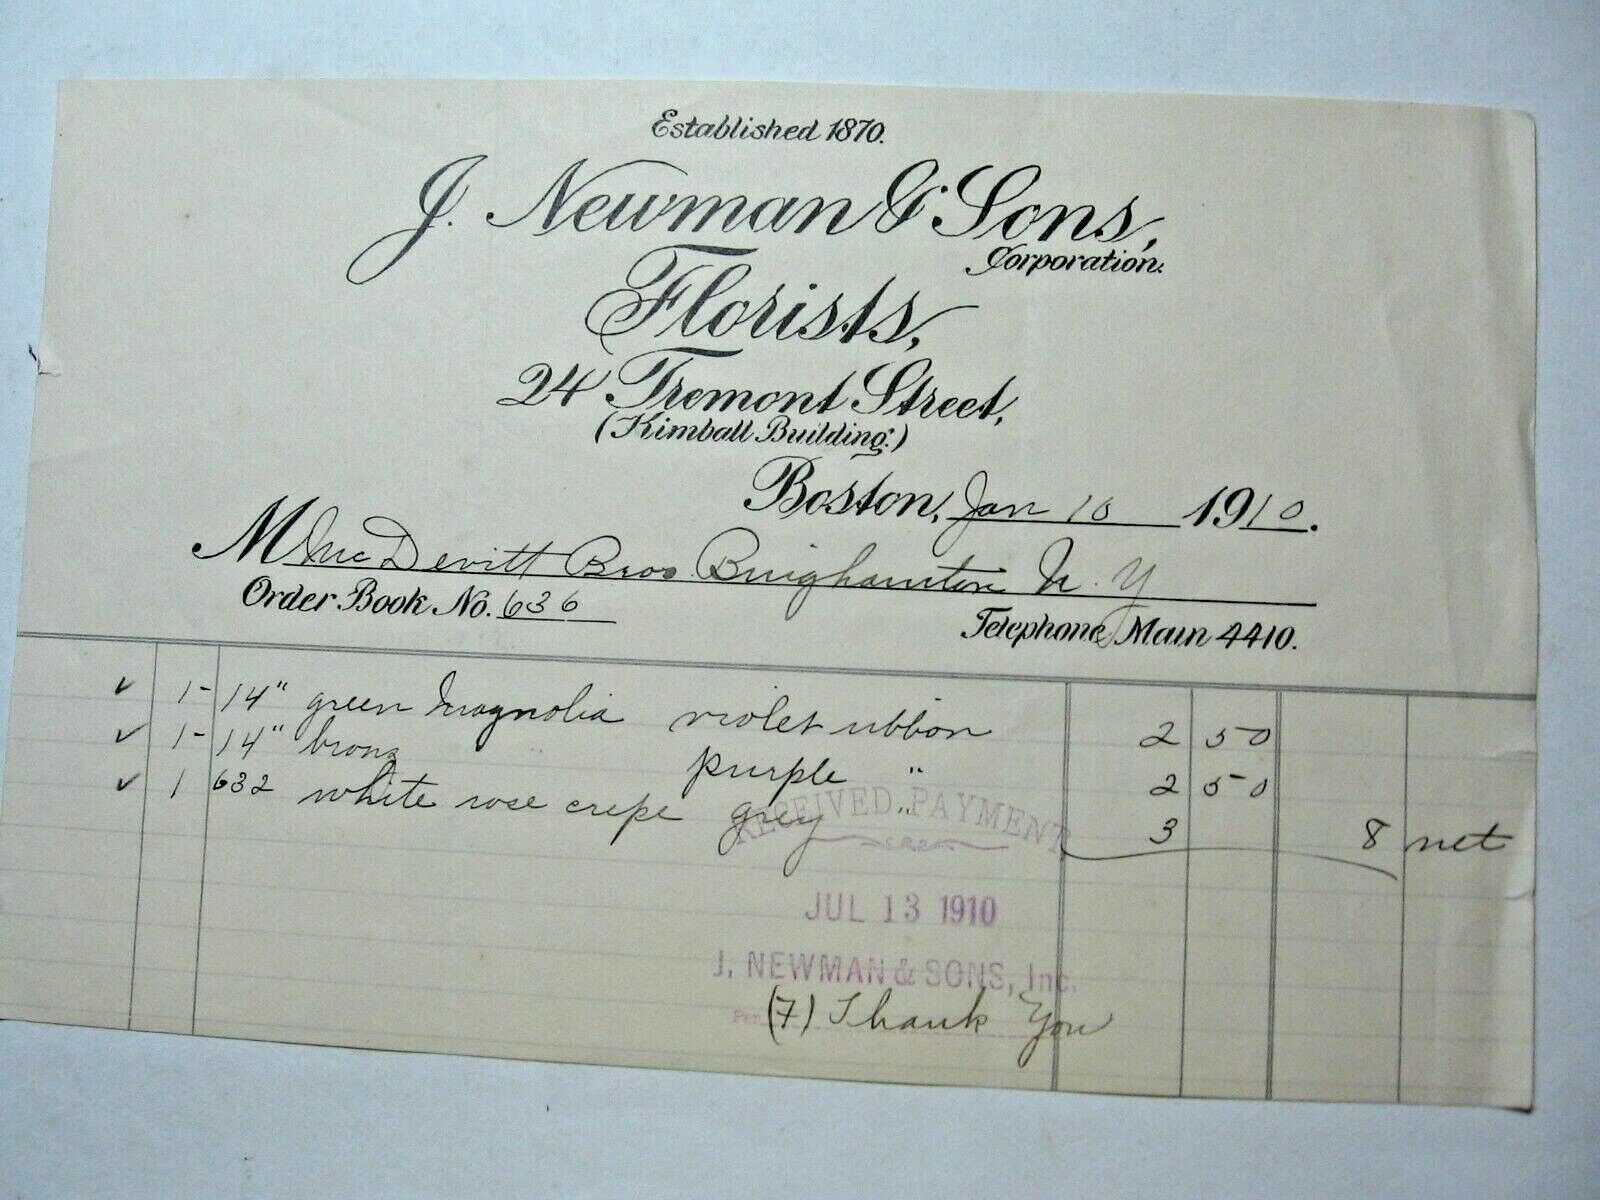 Established 1870.
J. Newman & Sons,
Corporation.
Florists,
24 Tremont Street,
(Kimball Building.)
Boston, Jan 10 1910.
M McDevitt Bros. Binghamton N. Y
Order Book No. 636
Telephone, Main 4410.
✓ 1- 14" green Magnolia violet ribbon 2 50
✓ 1- 14" bronz purple " 2 50
✓ 1 632 white rose crepe grey " 3 8 net
RECEIVED PAYMENT
JUL 13 1910
J. NEWMAN & SONS, Inc.
Per (7) Thank You